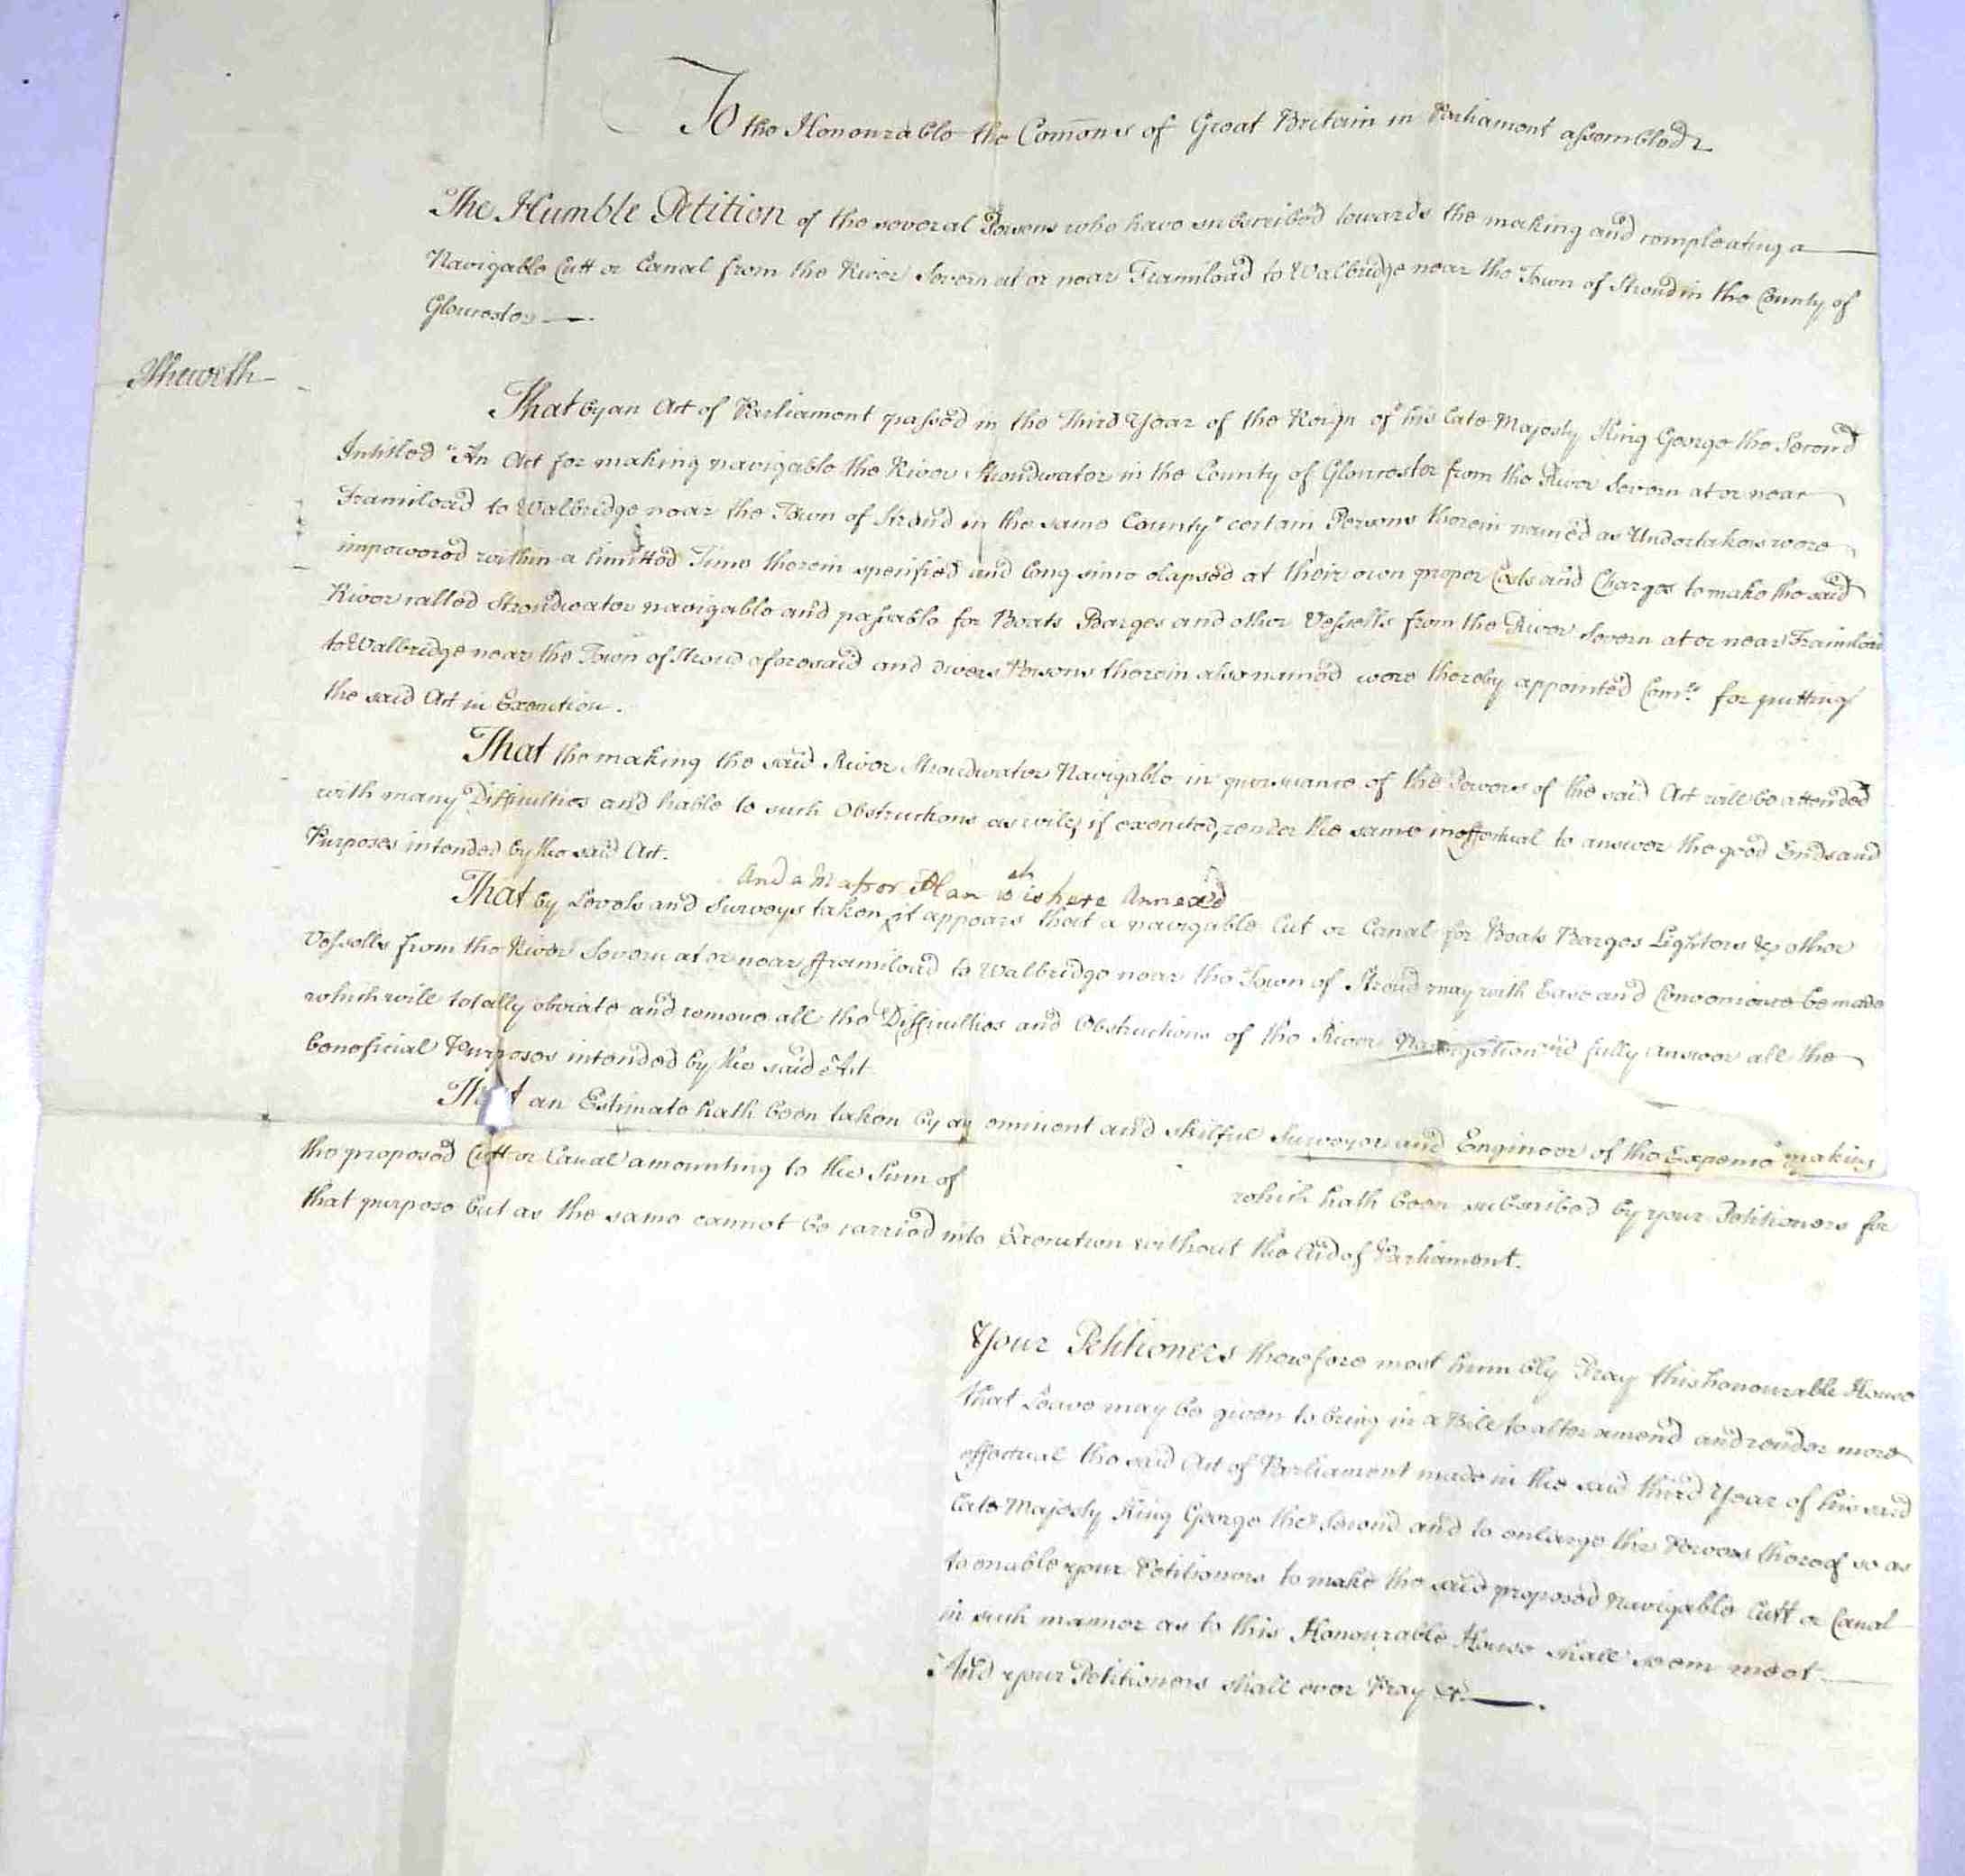 To the Honourable the Com̄ons of Great Britain in Parliament assembled
The Humble Petition of the several Persons who have subscribed towards the making and compleating a
Navigable Cutt or Canal from the River Severn at or near Framiload to Walbridge near the Town of Stroud in the County of
Gloucester
Sheweth
That by an Act of Parliament passed in the Third Year of the Reign of his late Majesty King George the Second
Intitled "An Act for making navigable the River Stroudwater in the County of Gloucester from the River Severn at or near
Framiload to Walbridge near the Town of Stroud in the same County" certain Persons therein named as Undertakers were
impowered within a limitted Time therein specified and long since elapsed at their own proper Costs and Charges to make the said
River called Stroudwater navigable and passable for Boats Barges and other Vessells from the River Severn at or near Framiload
to Walbridge near the Town of Stroud aforesaid and divers Persons therein also named were thereby appointed Com.rs for putting
the said Act in Execution.
That the making the said River Stroudwater Navigable in pursuance of the Powers of the said Act will be attended
with many Difficulties and liable to such Obstructions as will, if executed, render the same ineffectual to answer the good Ends and
Purposes intended by the said Act.
And a Map or Plan wch is here Annexed
That by Levels and Surveys taken, it appears that a navigable Cut or Canal for Boats Barges Lighters & other
Vessells from the River Severn at or near Framiload to Walbridge near the Town of Stroud may with Ease and Convenience be made
which will totally obviate and remove all the Difficulties and Obstructions of the River Navigation and fully answer all the
beneficial Purposes intended by the said Act
That an Estimate hath been taken by an eminent and skilful Surveyor and Engineer of the Expence making
the proposed Cutt or Canal amounting to the Sum of which hath been subscribed by your Petitioners for
that purpose but as the same cannot be carried into Execution without the Aid of Parliament.
Your Petitioners therefore most humbly Pray this honourable House
that Leave may be given to bring in a Bill to alter amend and render more
effectual the said Act of Parliament made in the said third Year of his said
late Majesty King George the Second and to enlarge the Powers thereof so as
to enable your Petitioners to make the said proposed Navigable Cutt or Canal
in such manner as to this Honourable House shall seem meet
And your Petitioners shall ever Pray &c.